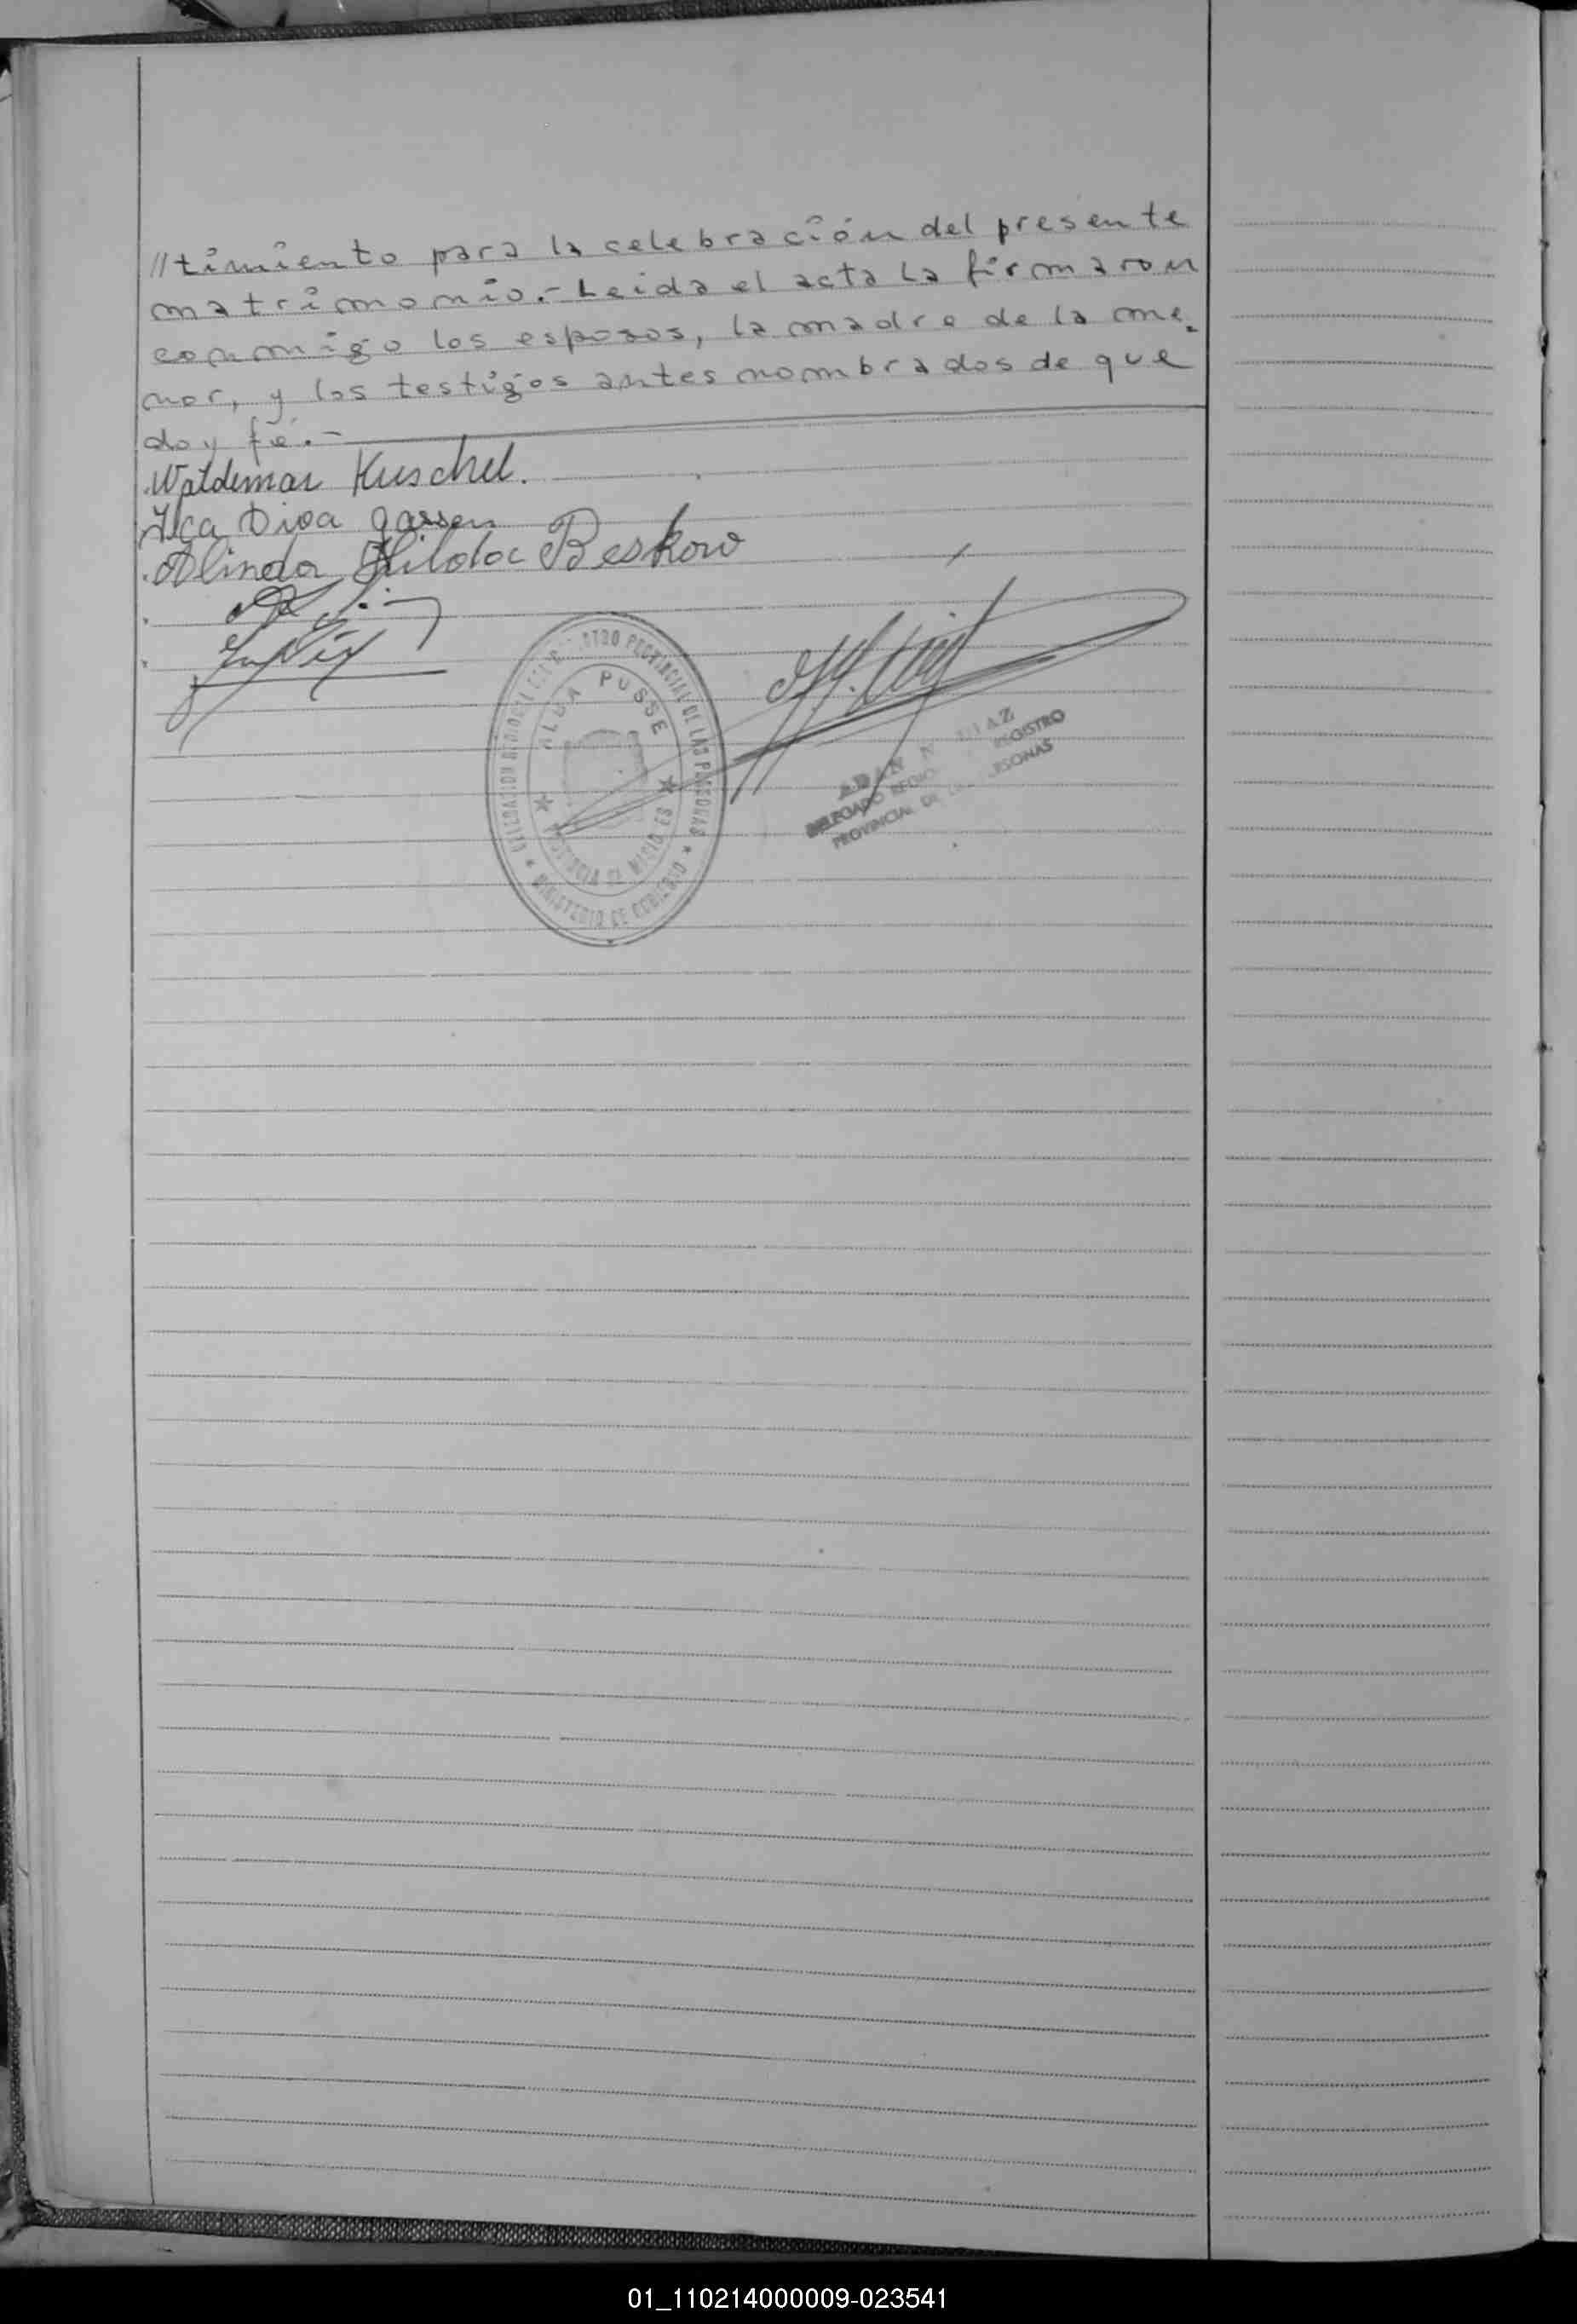 //timiento para la celebración del presente
matrimonio.- Leida el acta la firmaron
conmigo los esposos, la madre de la me-
nor, y los testigos antes nombrados de que
doy fé.-
Waldemar Kuschel.
Ilca Diva Gassen
Alinda Hilda Beskow
PROVINCIAL DE LAS PERSONAS
ALBA POSSE
PROVINCIA DE MISIONES
MINISTERIO DE GOBIERNO
DIAZ
DELEGADO REGISTRO
PROVINCIAL DE PERSONAS
01_110214000009-023541